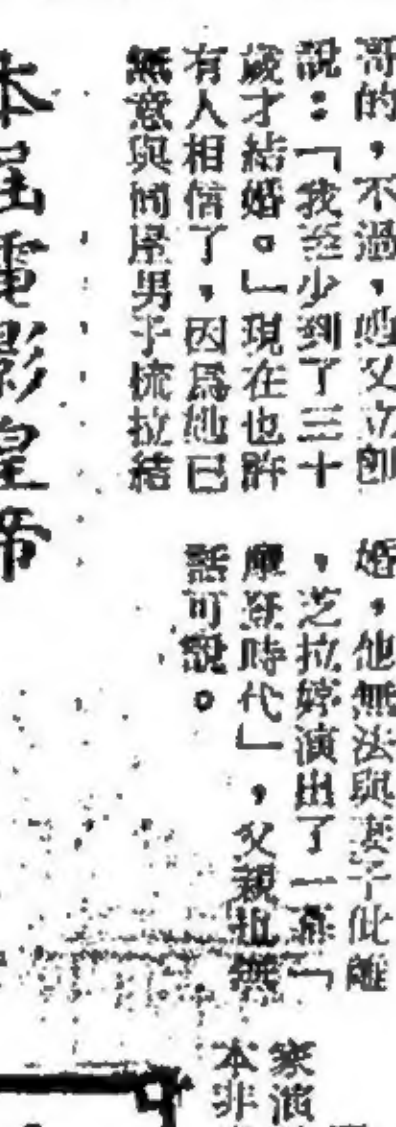 哥的,不過,她又立刻
說:「我至少到了三十
歲才結婚。」現在也許
有人相信了,因爲她已
無意與同居男子梳拉結
婚,他無法與妻子仳離
,芝拉婷演出了一幕「
摩登時代」,父親也無
話可說。
本屆電影皇帝
家演
本非